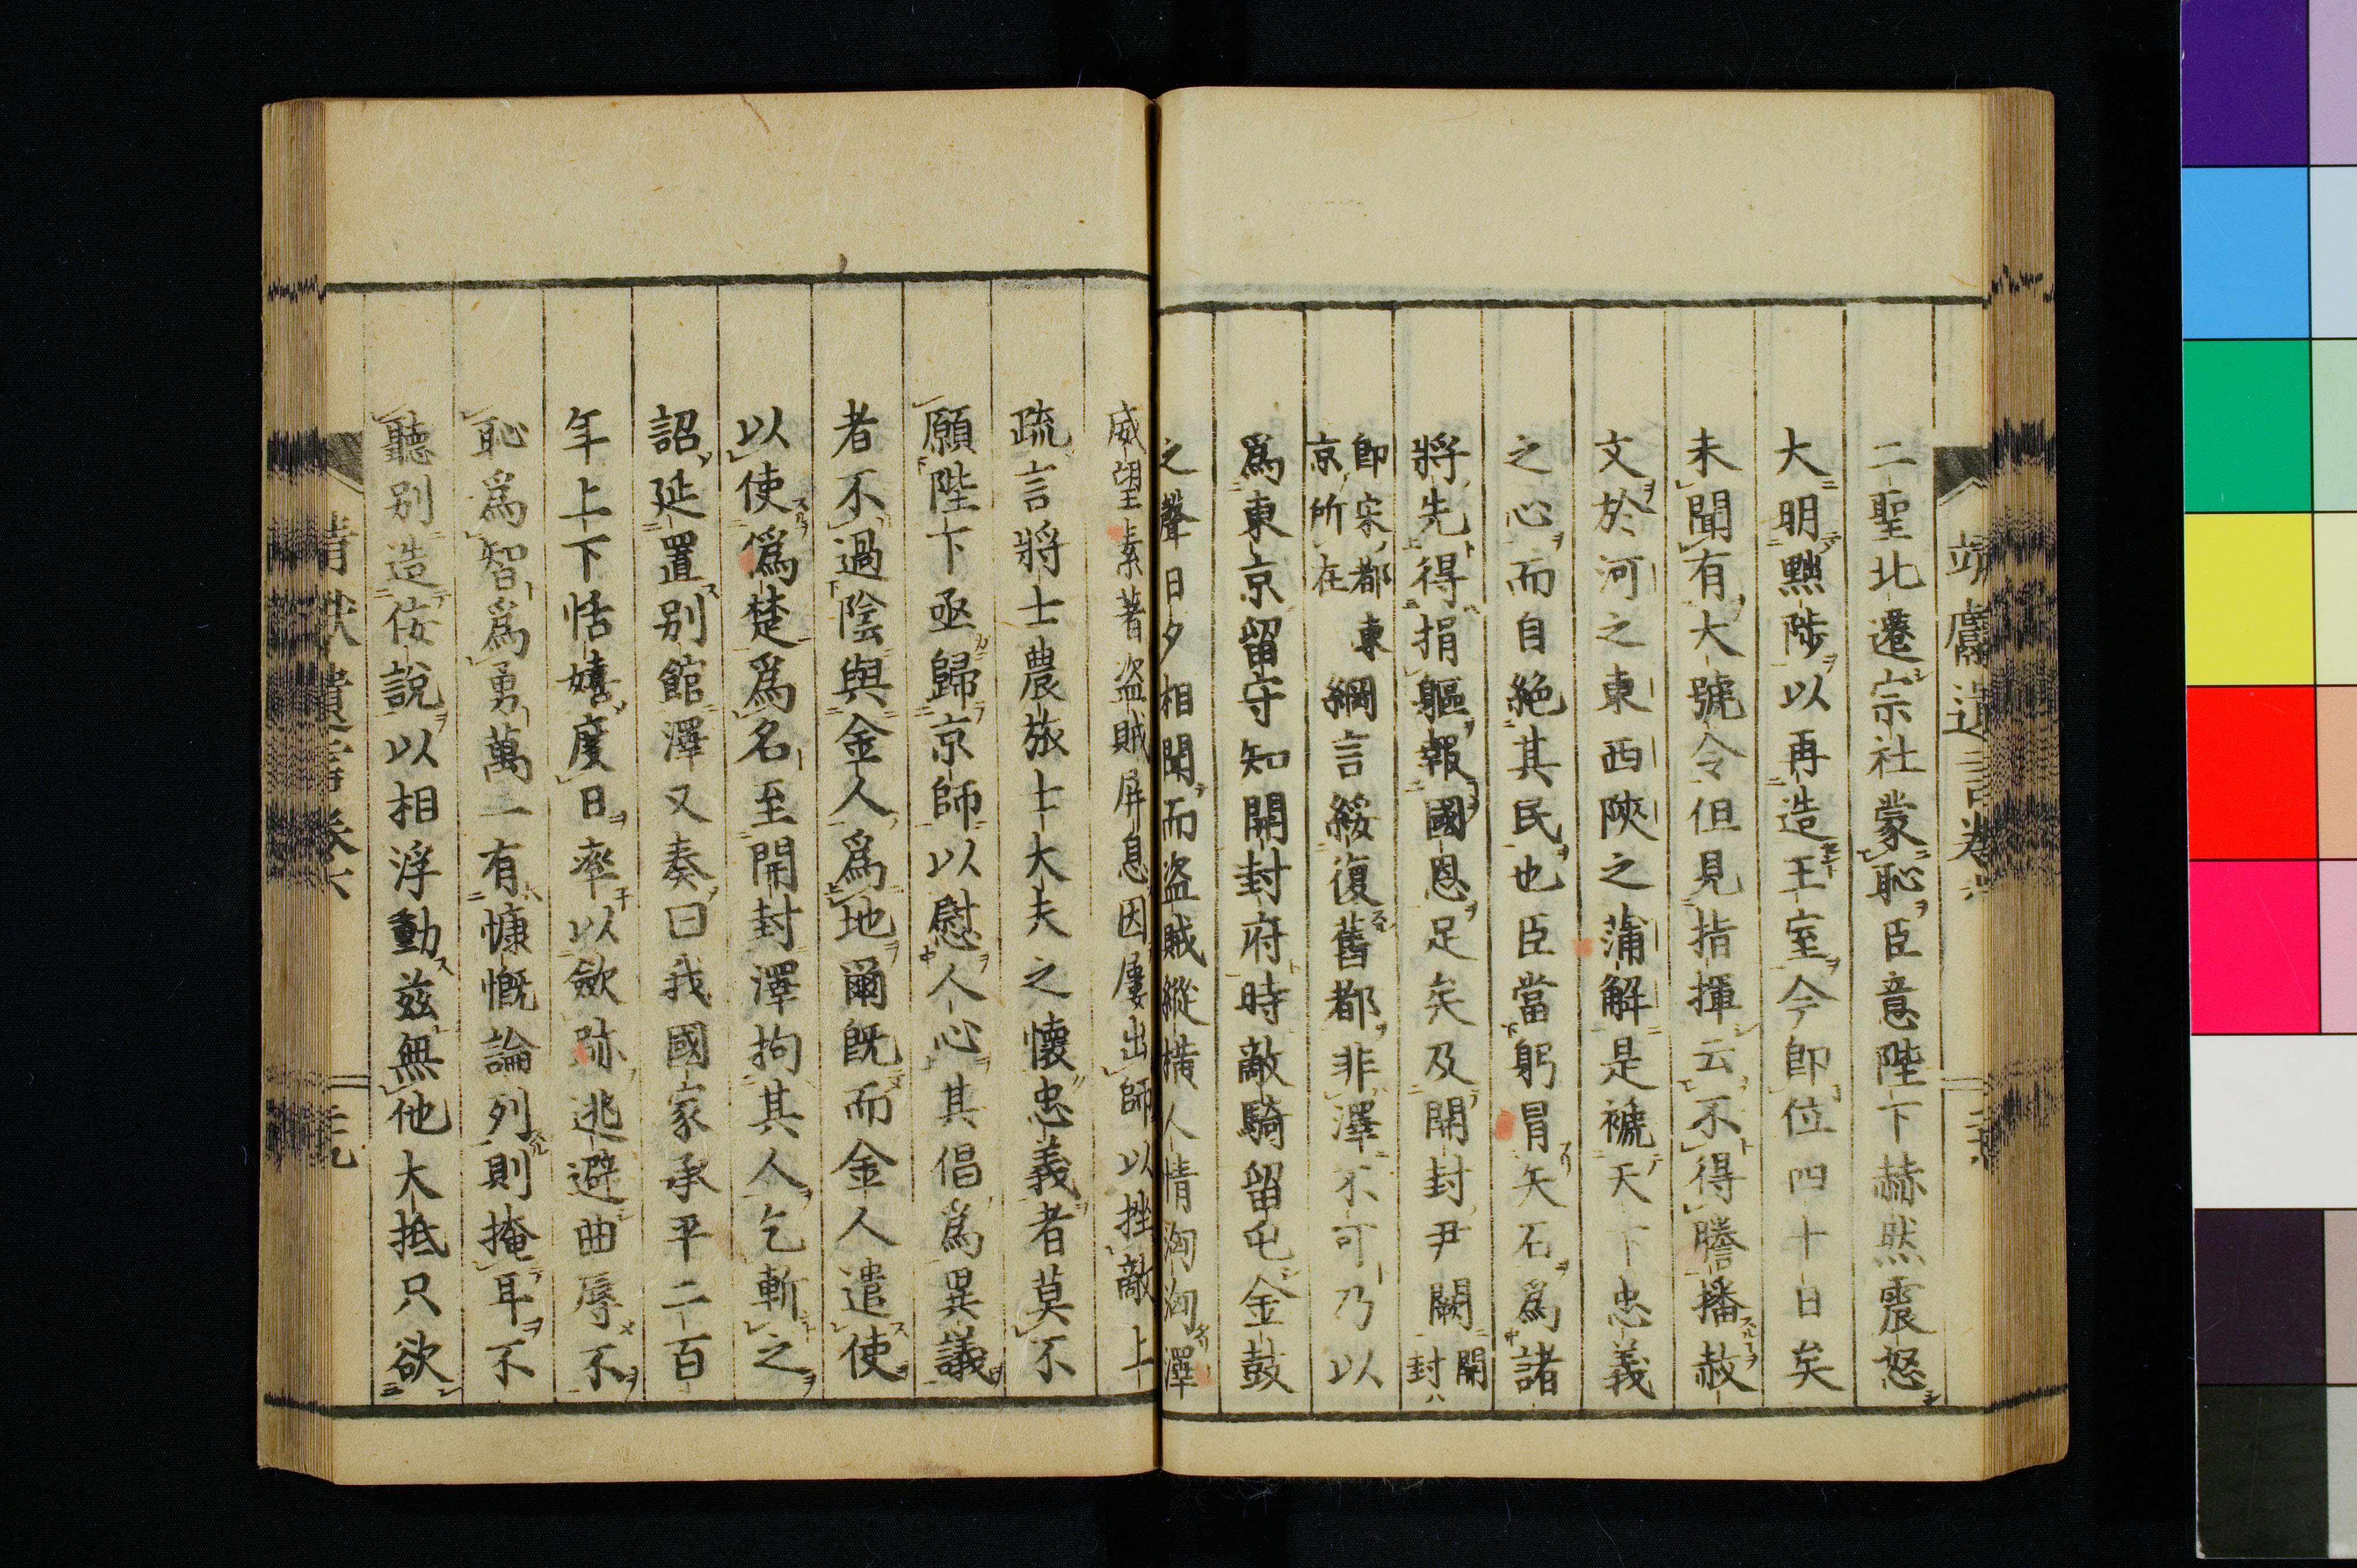 二聖北遷宗社蒙恥臣意陛下赫然震怒
大明黜陟以再造王室今即位四十日矣
未聞有大號令但見指揮云不得謄播赦
文於河之東西陝之蒲解是褫天下忠義
之心而自絶其民也臣當躬冒矢石爲諸
將先得捐軀報國恩足矣及開封尹闕開封ハ
即宋都東京所在綱言綏復舊都非澤不可乃以
爲東京留守知開封府時敵騎留屯金鼓
之聲日夕相聞而盗賊縱横人情洶洶澤
威望素著盗賊屏息因屢出師以挫敵上
疏言將士農旅士大夫之懷忠義者莫不
願陛下亟歸京師以慰人心其倡爲異議
者不過陰與金人爲地爾既而金人遣使
以使僞楚爲名至開封澤拘其人乞斬之
詔延置别館澤又奏曰我國家承平二百
年上下恬嬉度日率以斂跡逃避曲辱不
恥爲智爲勇萬一有慷慨論列則掩耳不
聽别造侫説以相浮動兹無他大抵只欲